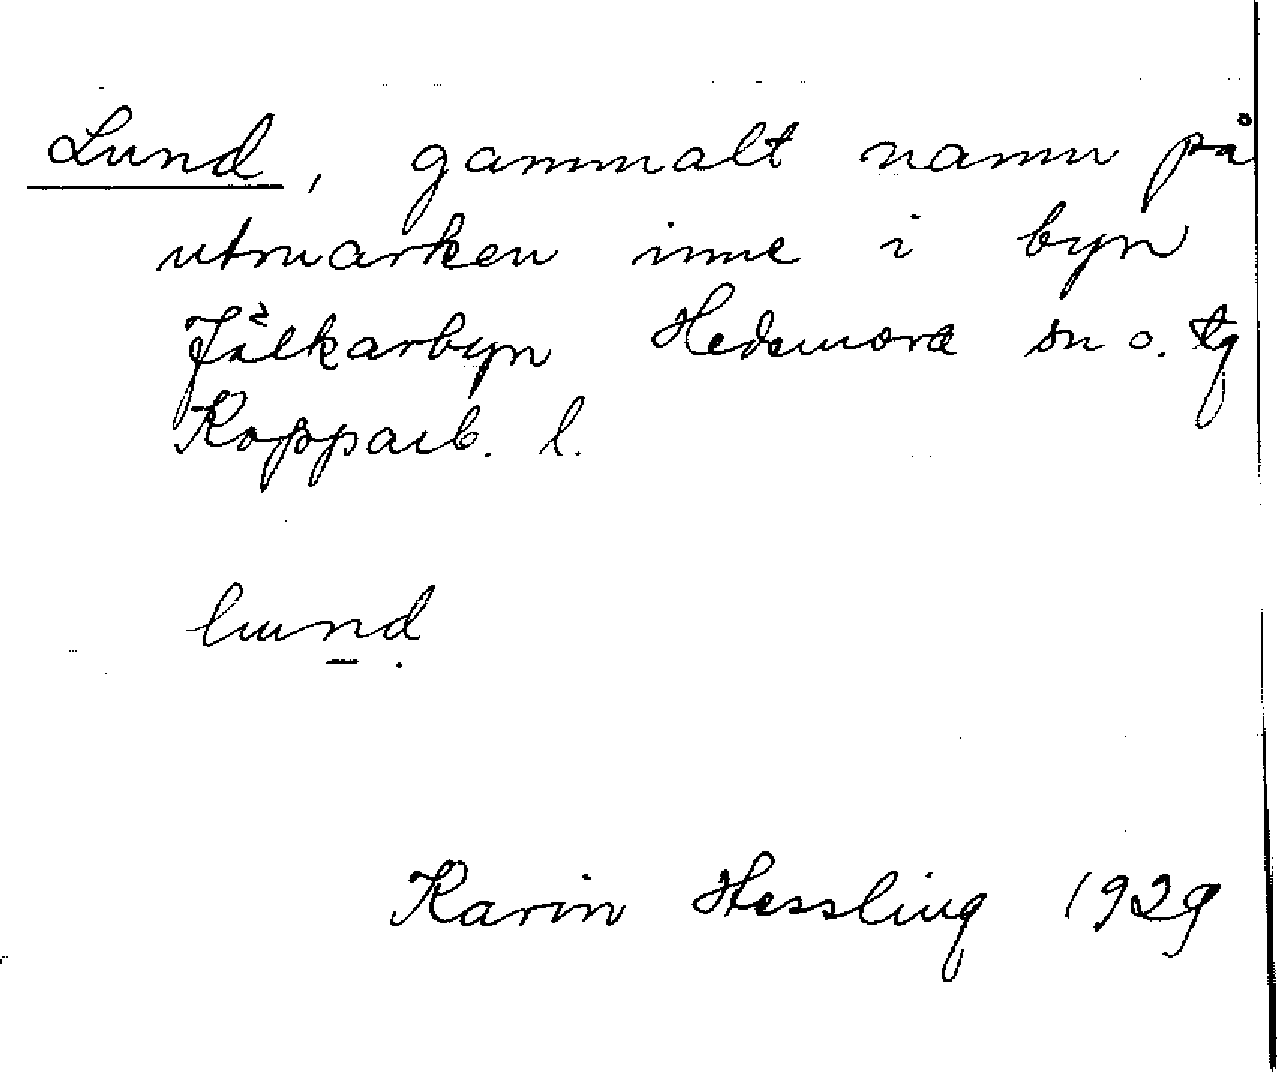 Lund, gammalt namn på
utmarken inne i byn
Jälkarbyn Hedemora sn o. tg
Kopparb. l.
lund
Karin Hessling 1929